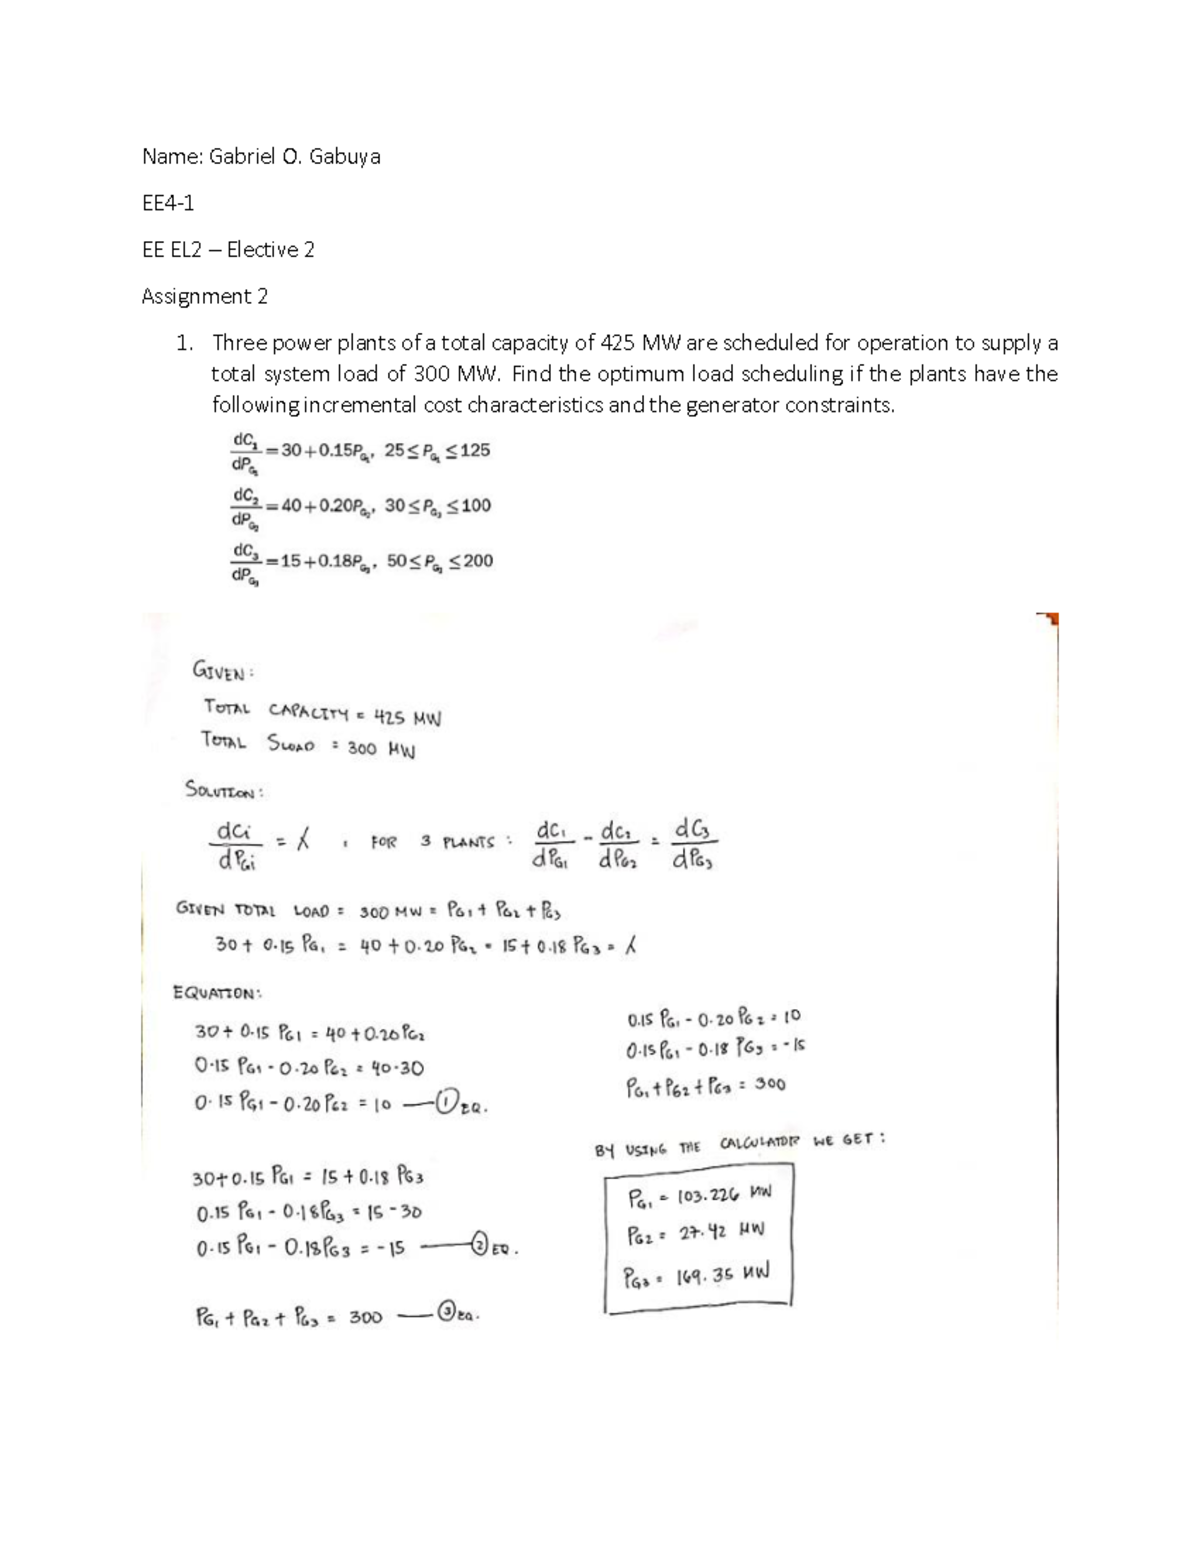 Name: Gabriel O. Gabuya
EE4-1
EE EL2 – Elective 2
Assignment 2
1. Three power plants of a total capacity of 425 MW are scheduled for operation to supply a
total system load of 300 MW. Find the optimum load scheduling if the plants have the
following incremental cost characteristics and the generator constraints.
dC₁/dP_G₁ = 30+0.15P_G₁, 25 ≤ P_G₁ ≤ 125
dC₂/dP_G₂ = 40+0.20P_G₂, 30 ≤ P_G₂ ≤ 100
dC₃/dP_G₃ = 15+0.18P_G₃, 50 ≤ P_G₃ ≤ 200
GIVEN:
TOTAL CAPACITY = 425 MW
TOTAL SLOAD = 300 MW
SOLUTION:
dCi/dPGi = λ , FOR 3 PLANTS : dC₁/dPG₁ - dC₂/dPG₂ = dC₃/dPG₃
GIVEN TOTAL LOAD = 300 MW = PG₁ + PG₂ + PG₃
30 + 0.15 PG₁ = 40 + 0.20 PG₂ = 15 + 0.18 PG₃ = λ
EQUATION:
30 + 0.15 PG₁ = 40 + 0.20 PG₂
0.15 PG₁ - 0.20 PG₂ = 40-30
0.15 PG₁ - 0.20 PG₂ = 10 — ① EQ.
30 + 0.15 PG₁ = 15 + 0.18 PG₃
0.15 PG₁ - 0.18 PG₃ = 15 - 30
0.15 PG₁ - 0.18 PG₃ = -15 — ② EQ.
PG₁ + PG₂ + PG₃ = 300 — ③ EQ.
0.15 PG₁ - 0.20 PG₂ = 10
0.15 PG₁ - 0.18 PG₃ = -15
PG₁ + PG₂ + PG₃ = 300
BY USING THE CALCULATOR WE GET :
PG₁ = 103.226 MW
PG₂ = 27.42 MW
PG₃ = 169.35 MW